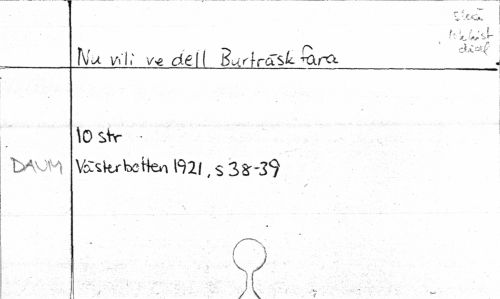 Nu vili ve dell Burträsk fara
10 str
DAUM Västerbotten 1921, s 38-39